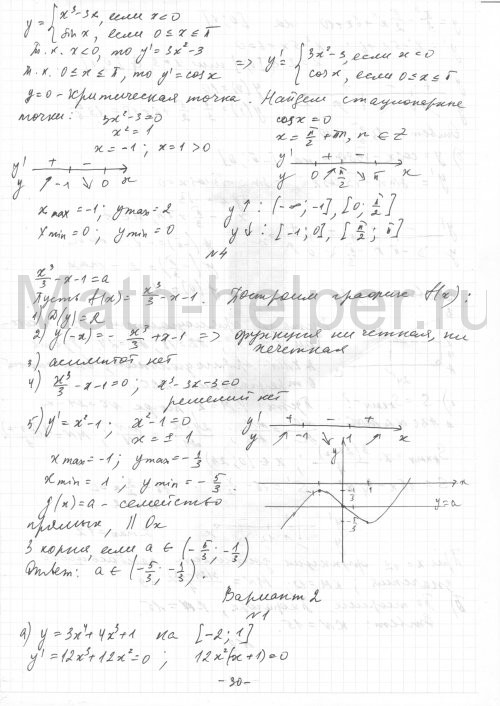 y = { x³-3x, если x<0
sin x, если 0≤x≤π
т.к. x<0, то y'=3x²-3
т.к. 0≤x≤π, то y'=cosx => y'= { 3x²-3, если x<0
cosx, если 0≤x≤π
y=0 - критическая точка. Найдем стационарные
точки: 3x²-3=0 cosx=0
x²=1 x= π/2 +πn, n∈Z
x=-1; x=1>0
y' + - y' + -
y -1 0 x y 0 π/2 π x
xmax=-1; ymax=2 y↑: (-∞;-1], [0; π/2]
xmin=0; ymin=0 y↓: [-1;0], [π/2; π]
№4
x³/3 -x-1=a
Пусть f(x)= x³/3 -x-1. Построим график f(x):
1) D(y)=R
2) y(-x)=- x³/3 +x-1 => функция ни четная, ни
нечетная
3) асимптот нет
4) x³/3 -x-1=0; x³-3x-3=0
решений нет
5) y'=x²-1; x²-1=0 y' + - +
x=±1 y -1 1 x
xmax=-1; ymax=-1/3
xmin=1; ymin=-5/3.
f(x)=a - семейство
прямых, || Ox
y x -1/3 1 -5/3 y=a
3 корня, если a∈(-5/3; -1/3)
Ответ: a∈(-5/3; -1/3).
Вариант 2
№1
а) y=3x⁴+4x³+1 на [-2;1]
y'=12x³+12x²=0; 12x²(x+1)=0
-30-
Math-helper.ru